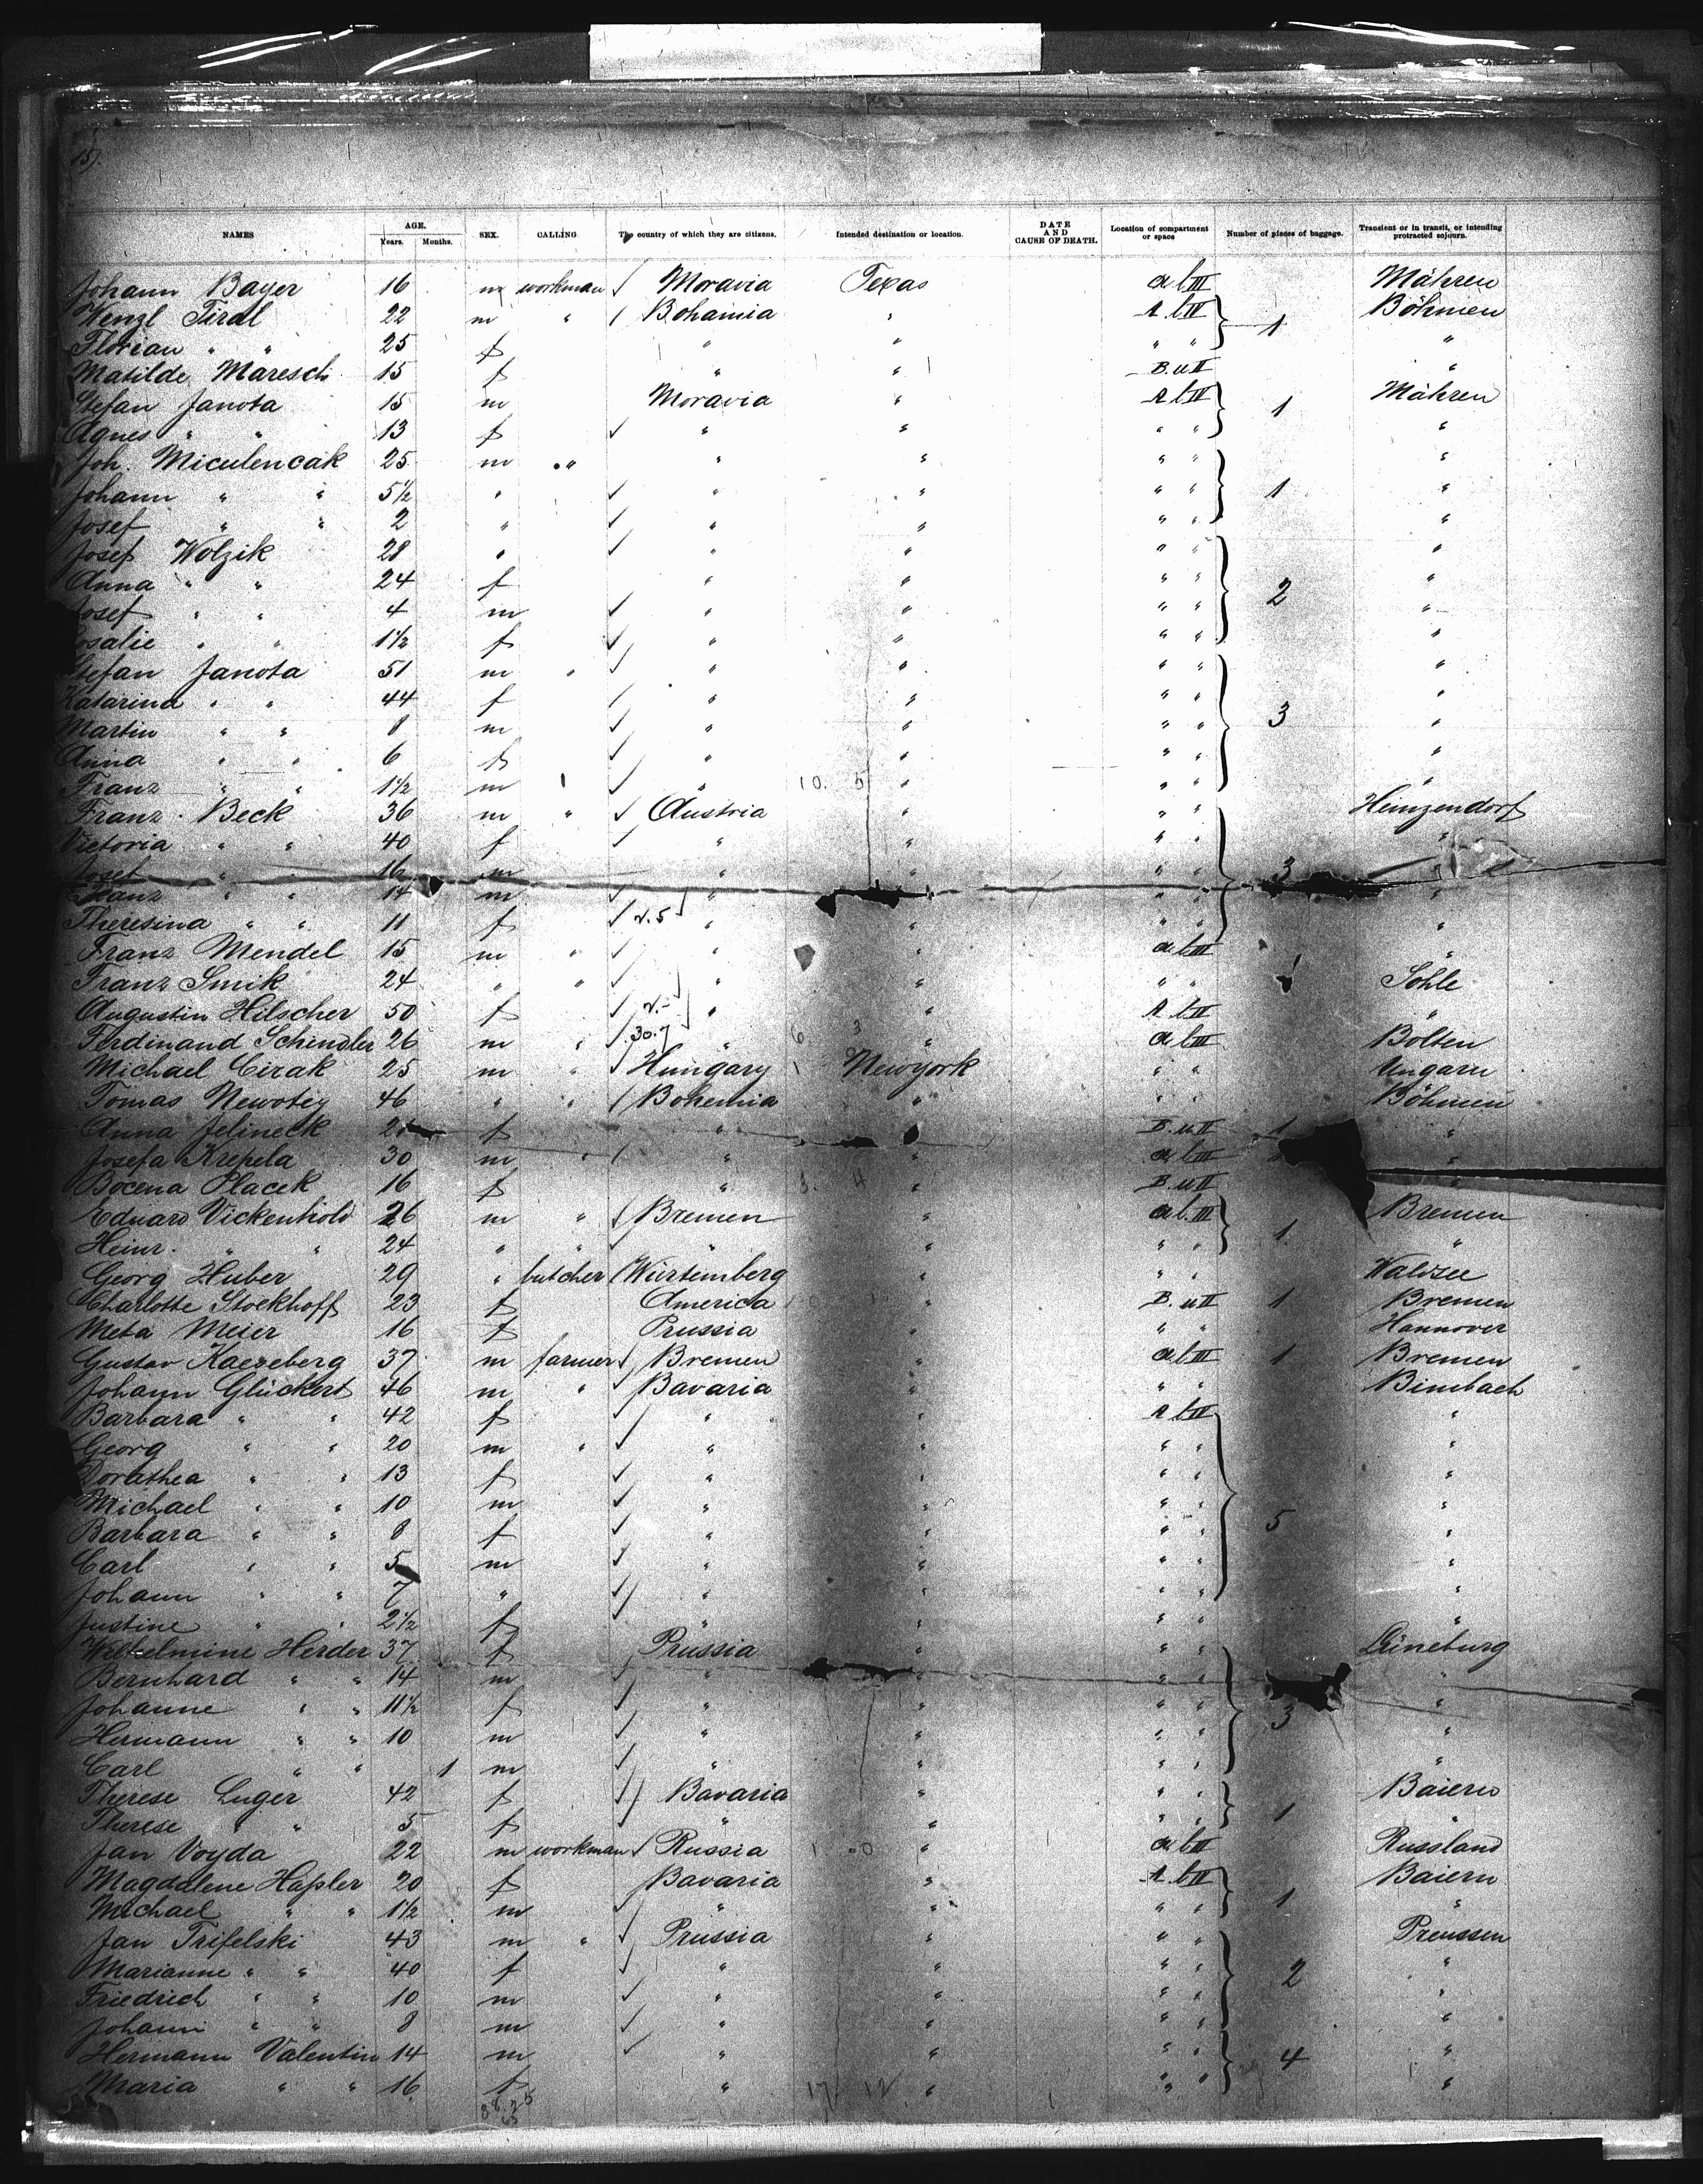 15).
NAMES AGE. Years. Months. SEX. CALLING. The country of which they are citizens. Intended destination or location. DATE AND CAUSE OF DEATH. Location of compartment or space Number of pieces of baggage. Transient or in transit, or intending protracted sojourn.
Johann Bayer 16 m workman Moravia Texas a b III Mähren
Wenzl Tiral 22 m " Bohamia " A b II 1 Böhmen
Florian " " 25 f " " " " "
Matilde Maresch 15 f " " B. u II "
Stefan Janota 15 m Moravia " A b II 1 Mähren
Agnes " " 13 f " " " " "
Joh. Miculencak 25 m " " " " " "
Johann " " 5½ " " " " " 1 "
Josef " " 2 " " " " " "
Josef Wolzik 28 " " " " " "
Anna " " 24 f " " " " 2 "
Josef " " 4 m " " " " "
Rosalie " " 1½ f " " " " "
Stefan Janota 51 m " " " " " "
Katarina " " 44 f " " " " "
Martin " " 8 m " " " " 3 "
Anna " " 6 f " " " " "
Franz " " 1½ m " 10. 5 " " " "
Franz Beck 36 m " Austria " " " Heinzendorf
Victoria " " 40 f " " " " "
Josef " " 16 m " " " " 3 "
Franz " " 14 m " " " " "
Theresina " " 11 f " " " " "
Franz Mendel 15 m " " " a b III "
Franz Smik 24 " " " " " " Sohle
Augustin Hilscher 50 f " " A b II "
Ferdinand Schindler 26 m " 30.7 " " a b III Bolten
Michael Cirak 25 m " Hungary Newyork " " Ungarn
Tomas Newotey 46 " " Bohemia " " " Böhmen
Anna Jelineck f " " B. u II 1 "
Josefa Krepela 30 m " " " a b III "
Bocena Placek 16 f " " B. u II "
Eduard Vickenhold 26 m " Bremen " a b III 1 Bremen
Heinr. " " 24 " " " " " " "
Georg Huber 29 " butcher Würtemberg " " " Waldsee
Charlotte Stockhoff 23 f America " B. u II 1 Bremen
Meta Meier 16 f Prussia " " " Hannover
Gustav Kaeseberg 37 m farmer Bremen " a b III 1 Bremen
Johann Glückert 46 m " Bavaria " " " Bimbach
Barbara " " 42 f " " A b II "
Georg " " 20 m " " " " " "
Dorethea " " 13 f " " " " "
Michael " " 10 m " " " " "
Barbara " " 8 f " " " " 5 "
Carl " " 5 m " " " " "
Johann " " 7 " " " " " "
Justine " " 2½ f " " " " "
Wilhelmine Herder 37 f Prussia " " " Lüneburg
Bernhard " " 14 m " " " " "
Johanne " " 11½ f " " " " 3 "
Hermann " " 10 m " " " " "
Carl " " 1 m " " " " "
Therese Luger 42 f Bavaria " " " 1 Baiern
Therese " " 5 f " " " " "
Jan Voyda 22 m workman Russia " a b III Russland
Magdalene Hapler 20 f Bavaria " A b II 1 Baiern
Michael " " 1½ m " " " " "
Jan Trifelski 43 m " Prussia " " " Preussen
Marianne " " 40 f " " " " 2 "
Friedrich " " 10 m " " " " "
Johann " " 8 m " " " " "
Hermann Valentin 14 m " " " " 4 "
Maria " " 16 f " 17 12 " " " "